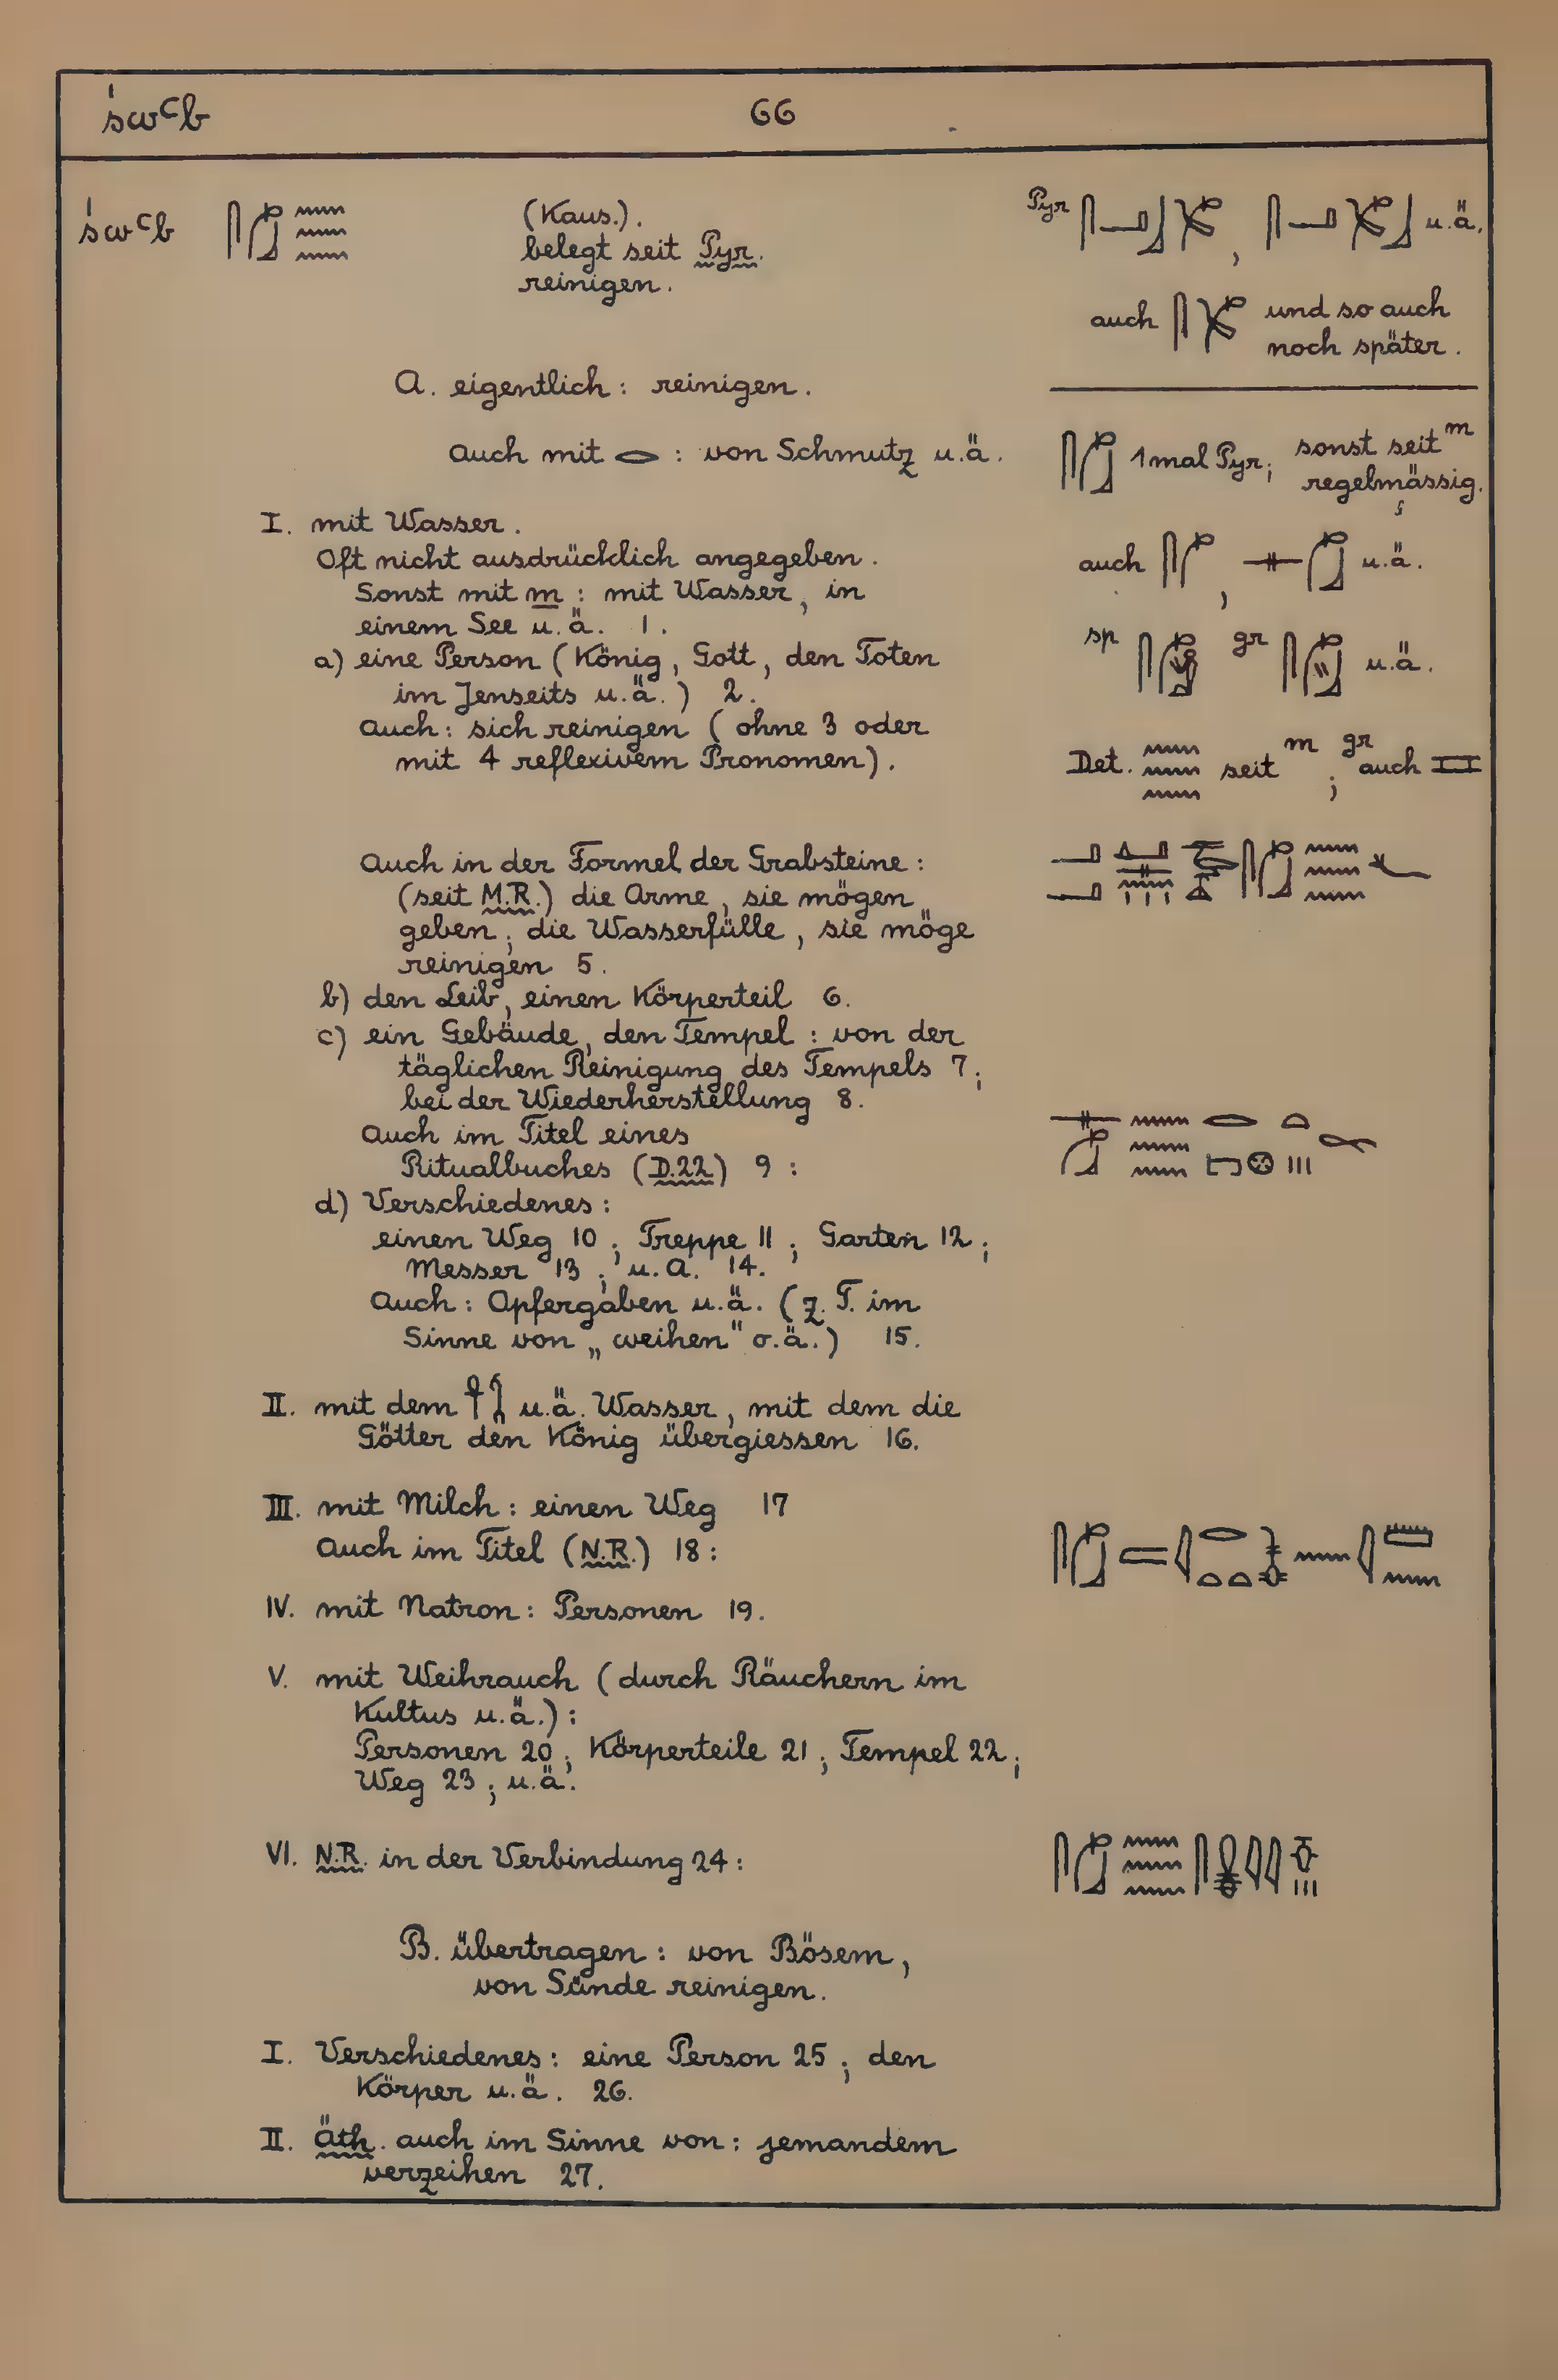 śwꜥb 66
śwꜥb (Kaus.).
belegt seit Pyr.
reinigen.
A. eigentlich: reinigen.
auch mit 𓂋 : von Schmutz u.ä.
I. mit Wasser.
Oft nicht ausdrücklich angegeben.
Sonst mit m : mit Wasser, in
einem See u.ä. 1.
a) eine Person (König, Gott, den Toten
im Jenseits u.ä.) 2.
Auch: sich reinigen (ohne 3 oder
mit 4 reflexivem Pronomen).
Auch in der Formel der Grabsteine:
(seit M.R.) die Arme, sie mögen
geben; die Wasserfülle, sie möge
reinigen 5.
b) den Leib, einen Körperteil 6.
c) ein Gebäude, den Tempel: von der
täglichen Reinigung des Tempels 7;
bei der Wiederherstellung 8.
Auch im Titel eines
Ritualbuches (D.22) 9 :
d) Verschiedenes:
einen Weg 10; Treppe 11; Garten 12;
Messer 13; u.a. 14.
Auch: Opfergaben u.ä. (z.T. im
Sinne von „weihen" o.ä.) 15.
II. mit dem 𓋹𓌀 u.ä. Wasser, mit dem die
Götter den König übergiessen 16.
III. mit Milch: einen Weg 17
Auch im Titel (N.R.) 18:
IV. mit Natron: Personen 19.
V. mit Weihrauch (durch Räuchern im
Kultus u.ä.):
Personen 20; Körperteile 21; Tempel 22;
Weg 23; u.ä.
VI. N.R. in der Verbindung 24:
B. übertragen: von Bösem,
von Sünde reinigen.
I. Verschiedenes: eine Person 25; den
Körper u.ä. 26.
II. Äth. auch im Sinne von: jemandem
verzeihen 27.
Pyr , u.ä.
auch und so auch
noch später.
1mal Pyr; sonst seit m
regelmässig.
auch , u.ä.
sp gr u.ä.
Det. 𓈗 seit m ; gr auch 𓈘